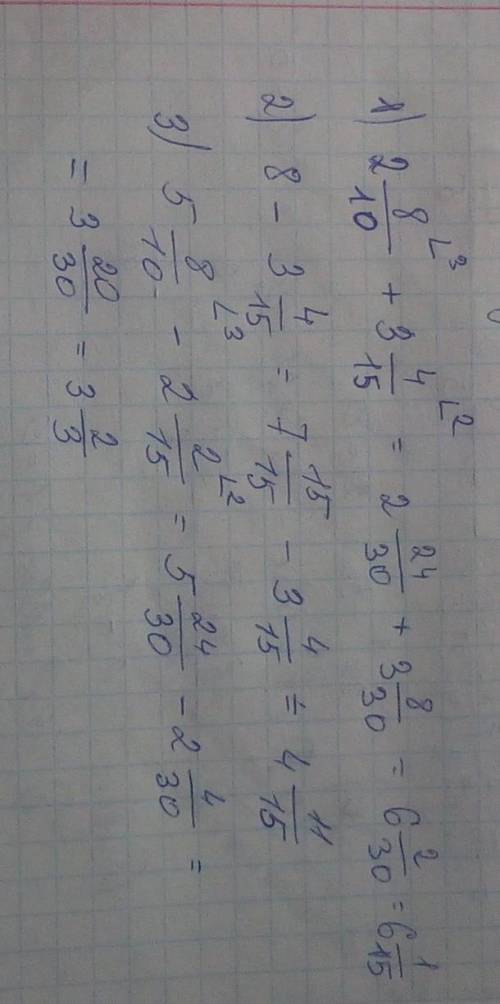 1) 2 8/10 ∟3 + 3 4/15 ∟2 = 2 24/30 + 3 8/30 = 6 2/30 = 6 1/15
2) 8 - 3 4/15 = 7 15/15 - 3 4/15 = 4 11/15
3) 5 8/10 ∟3 - 2 2/15 ∟2 = 5 24/30 - 2 4/30 =
= 3 20/30 = 3 2/3